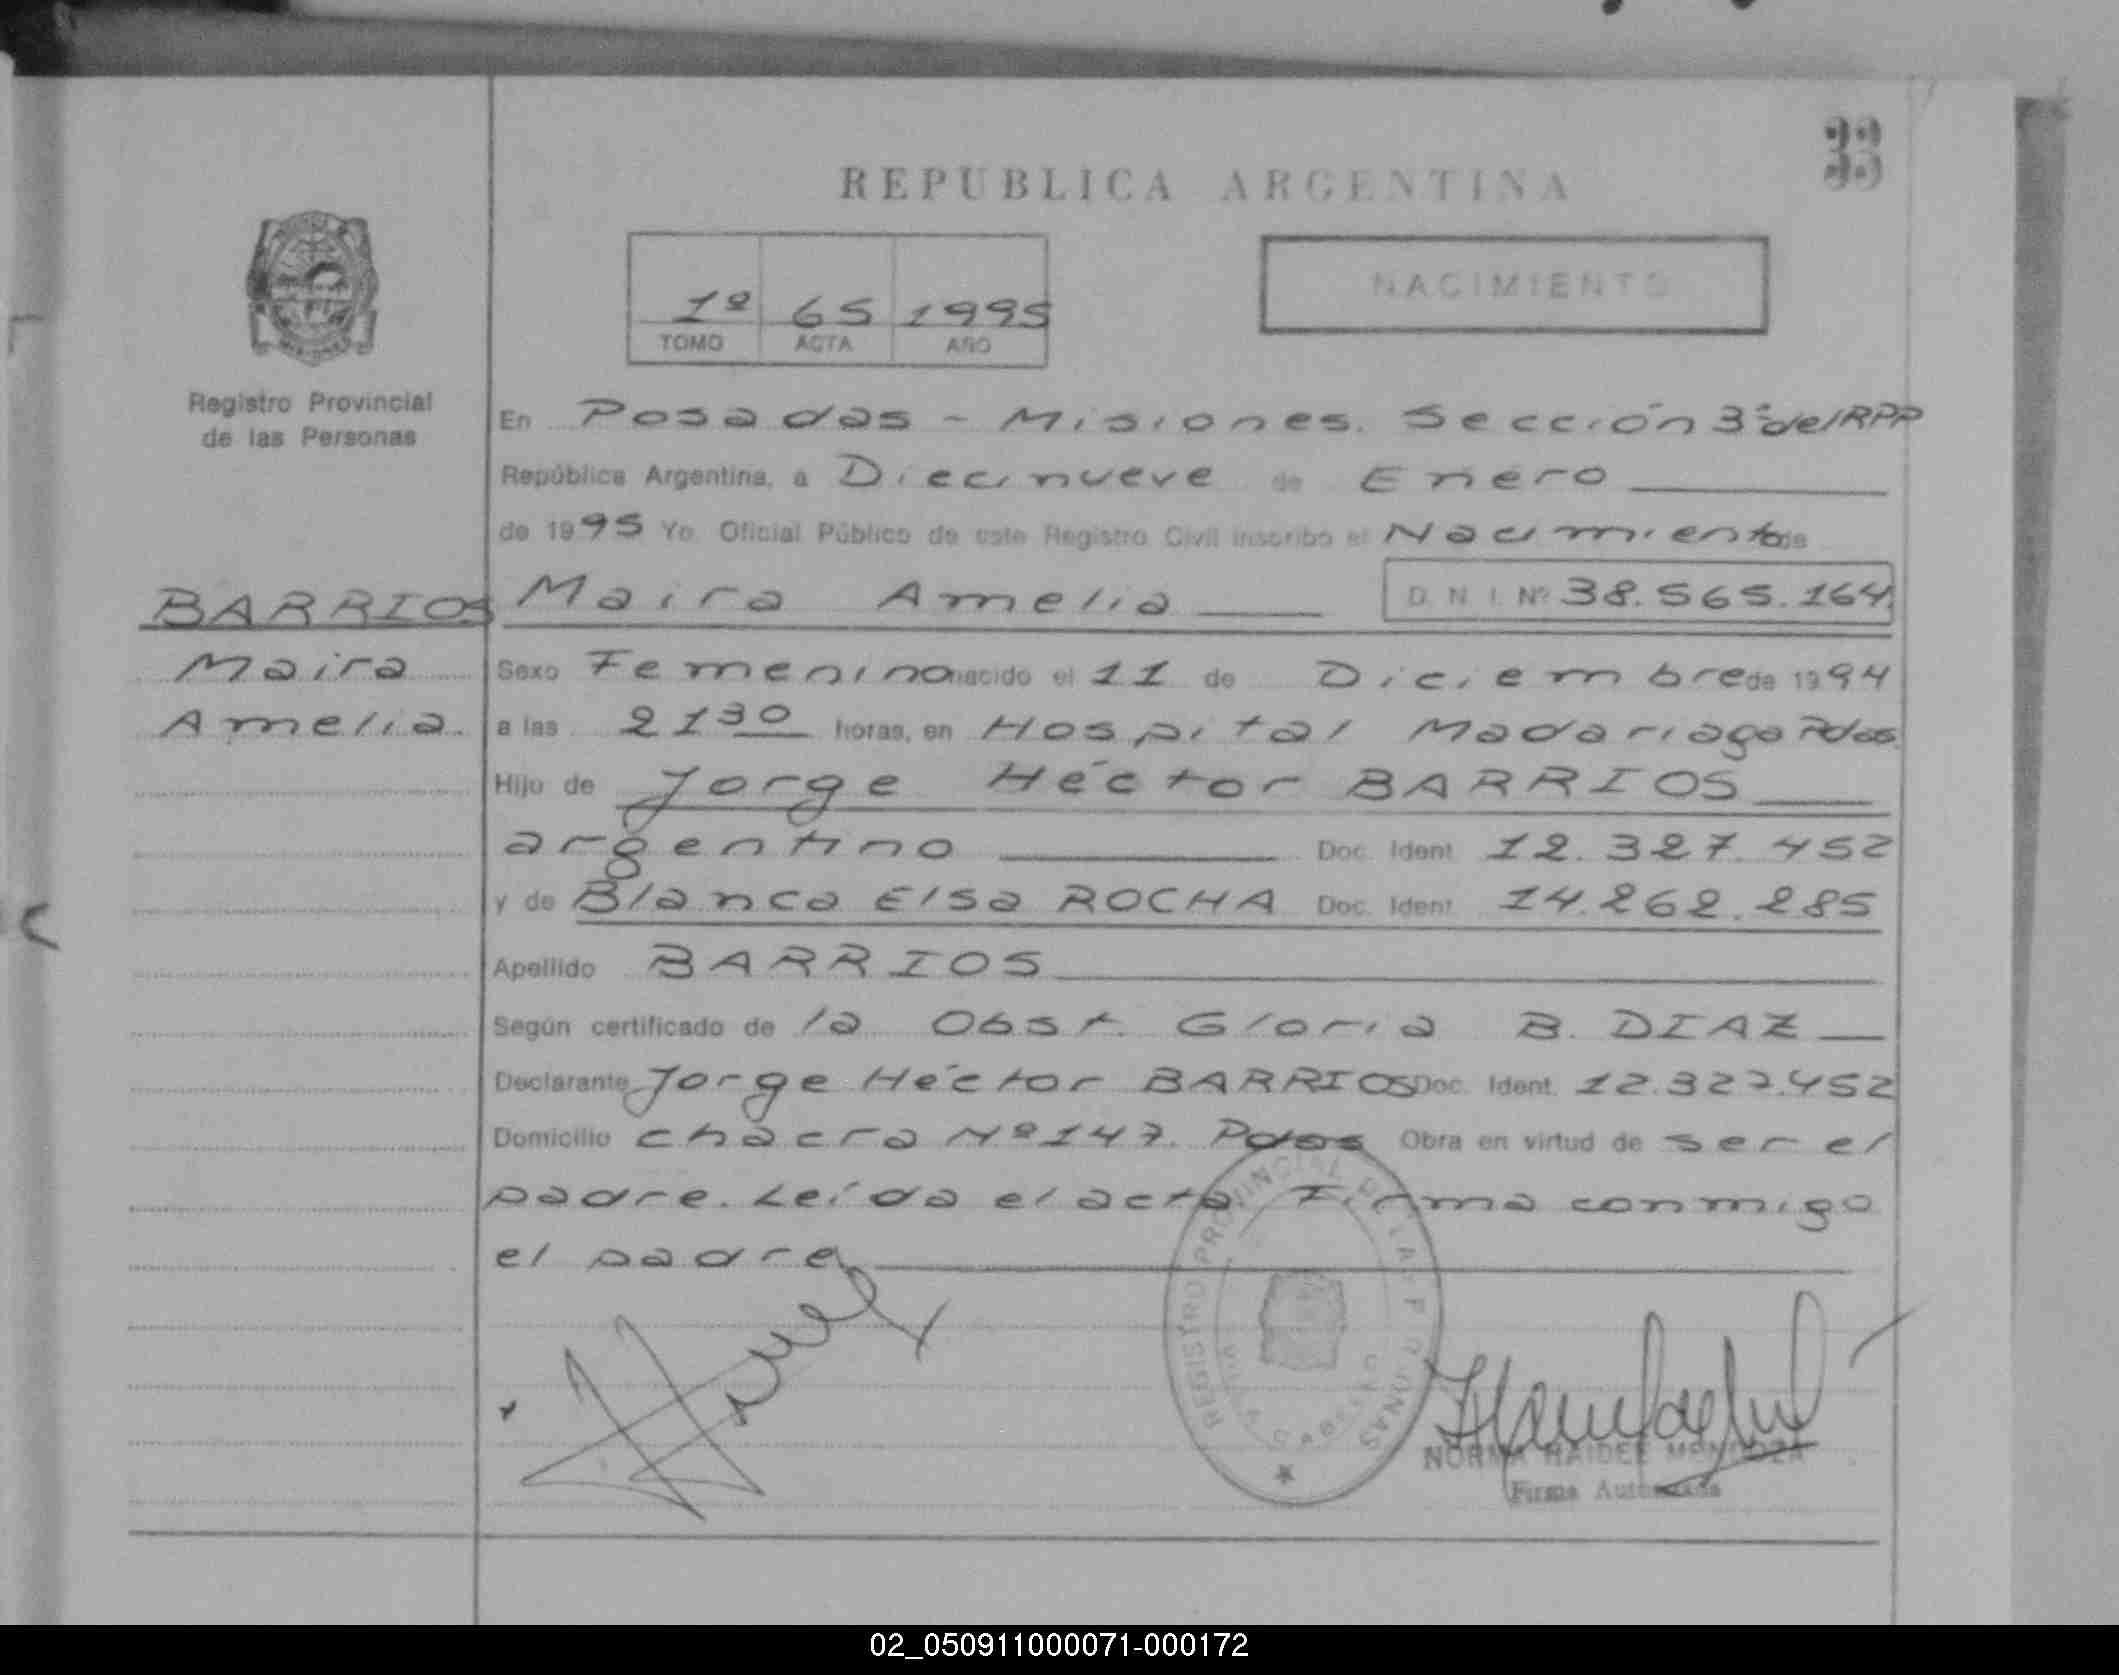 33
REPUBLICA ARGENTINA
1º 65 1995
TOMO ACTA AÑO
NACIMIENTO
Registro Provincial
de las Personas
En Posadas - Misiones. Sección 3ª del RPP
República Argentina, a Diecinueve de Enero
de 1995 Yo Oficial Público de este Registro Civil inscribo el Nacimiento de
BARRIOS Maira Amelia D. N. I. Nº 38.565.164.
Maira
Amelia.
Sexo Femenino nacido el 11 de Diciembre de 1994
a las 21 30 horas, en Hospital Madariaga Pdas.
Hijo de Jorge Héctor BARRIOS
argentino Doc. Ident. 12.327.452
y de Blanca Elsa ROCHA Doc. Ident. 14.262.285
Apellido BARRIOS
Según certificado de la Obst. Gloria B. DIAZ
Declarante Jorge Héctor BARRIOS Doc. Ident. 12.327.452
Domicilio chacra Nº 147. Pdas Obra en virtud de ser el
padre. Leída el acta Firma conmigo
el padre
REGISTRO PROVINCIAL DE LAS PERSONAS
NORMA HAIDEE MENDOZA
Firma Autorizada
02_050911000071-000172